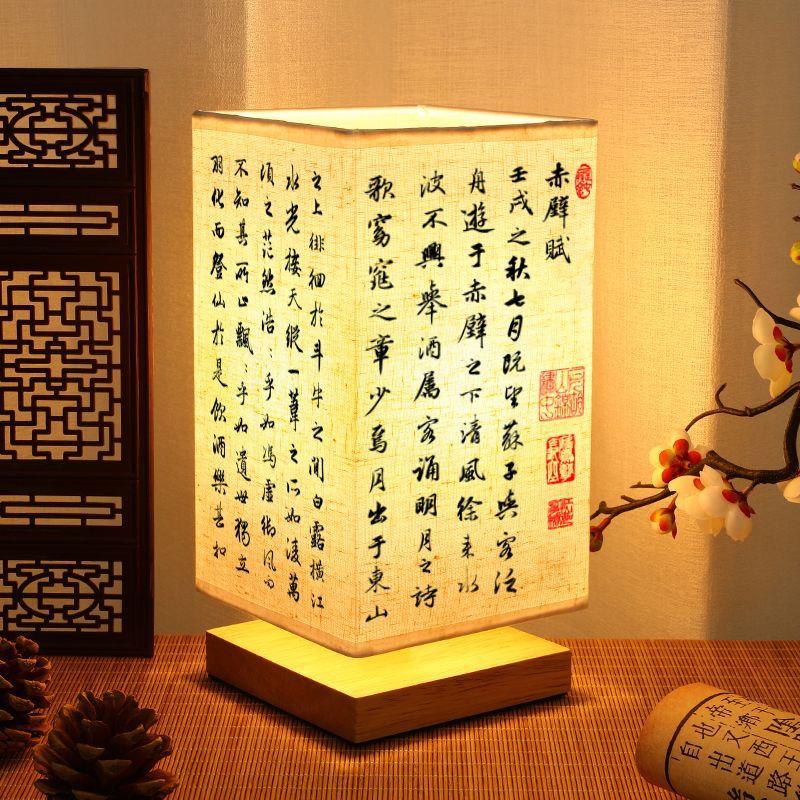 赤壁賦
壬戌之秋七月既望蘇子與客泛
舟遊于赤壁之下清風徐来水
波不興舉酒属客誦明月之詩
歌窈窕之章少焉月出于東山
之上徘徊於斗牛之間白露橫江
水光接天縱一葦之所如凌萬
頃之茫然浩:乎如馮虛御風而
不知其所止飄:乎如遺世獨立
羽化而登仙於是飲酒樂甚扣
自出道路